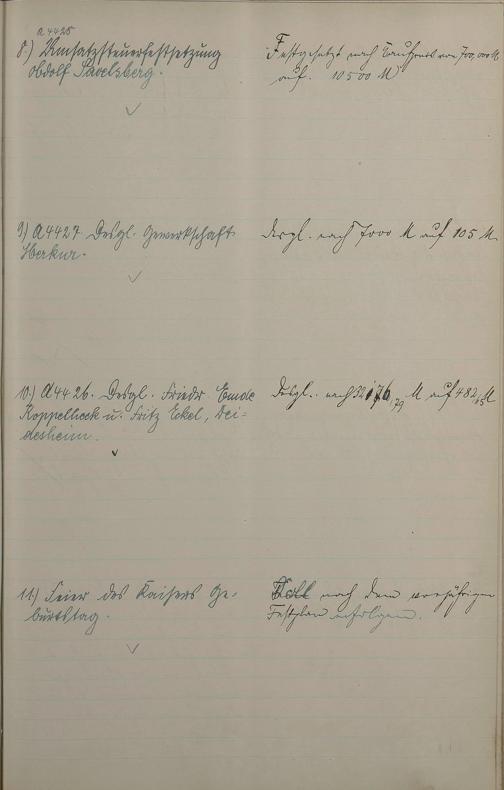 A 4425
8.) Umsatzsteuerfestsetzung
Adolf Savelsberg.
Festgesetzt nach Kaufpreis von 700,000 M
auf. 10500 M
9) A 4427 Desgl. Gewerkschaft
Merkur.
desgl. nach 7000 M auf 105 M.
10.) A 4426. Desgl. Friedr Emde
Koppelheck u. Fritz Eckel, Dei-
desheim.
Desgl. nach 32176,79 M auf 482,65 M
11.) Feier des Kaisers Ge-
burtstag.
Soll nach dem vorjährigen
Festplan erfolgen.